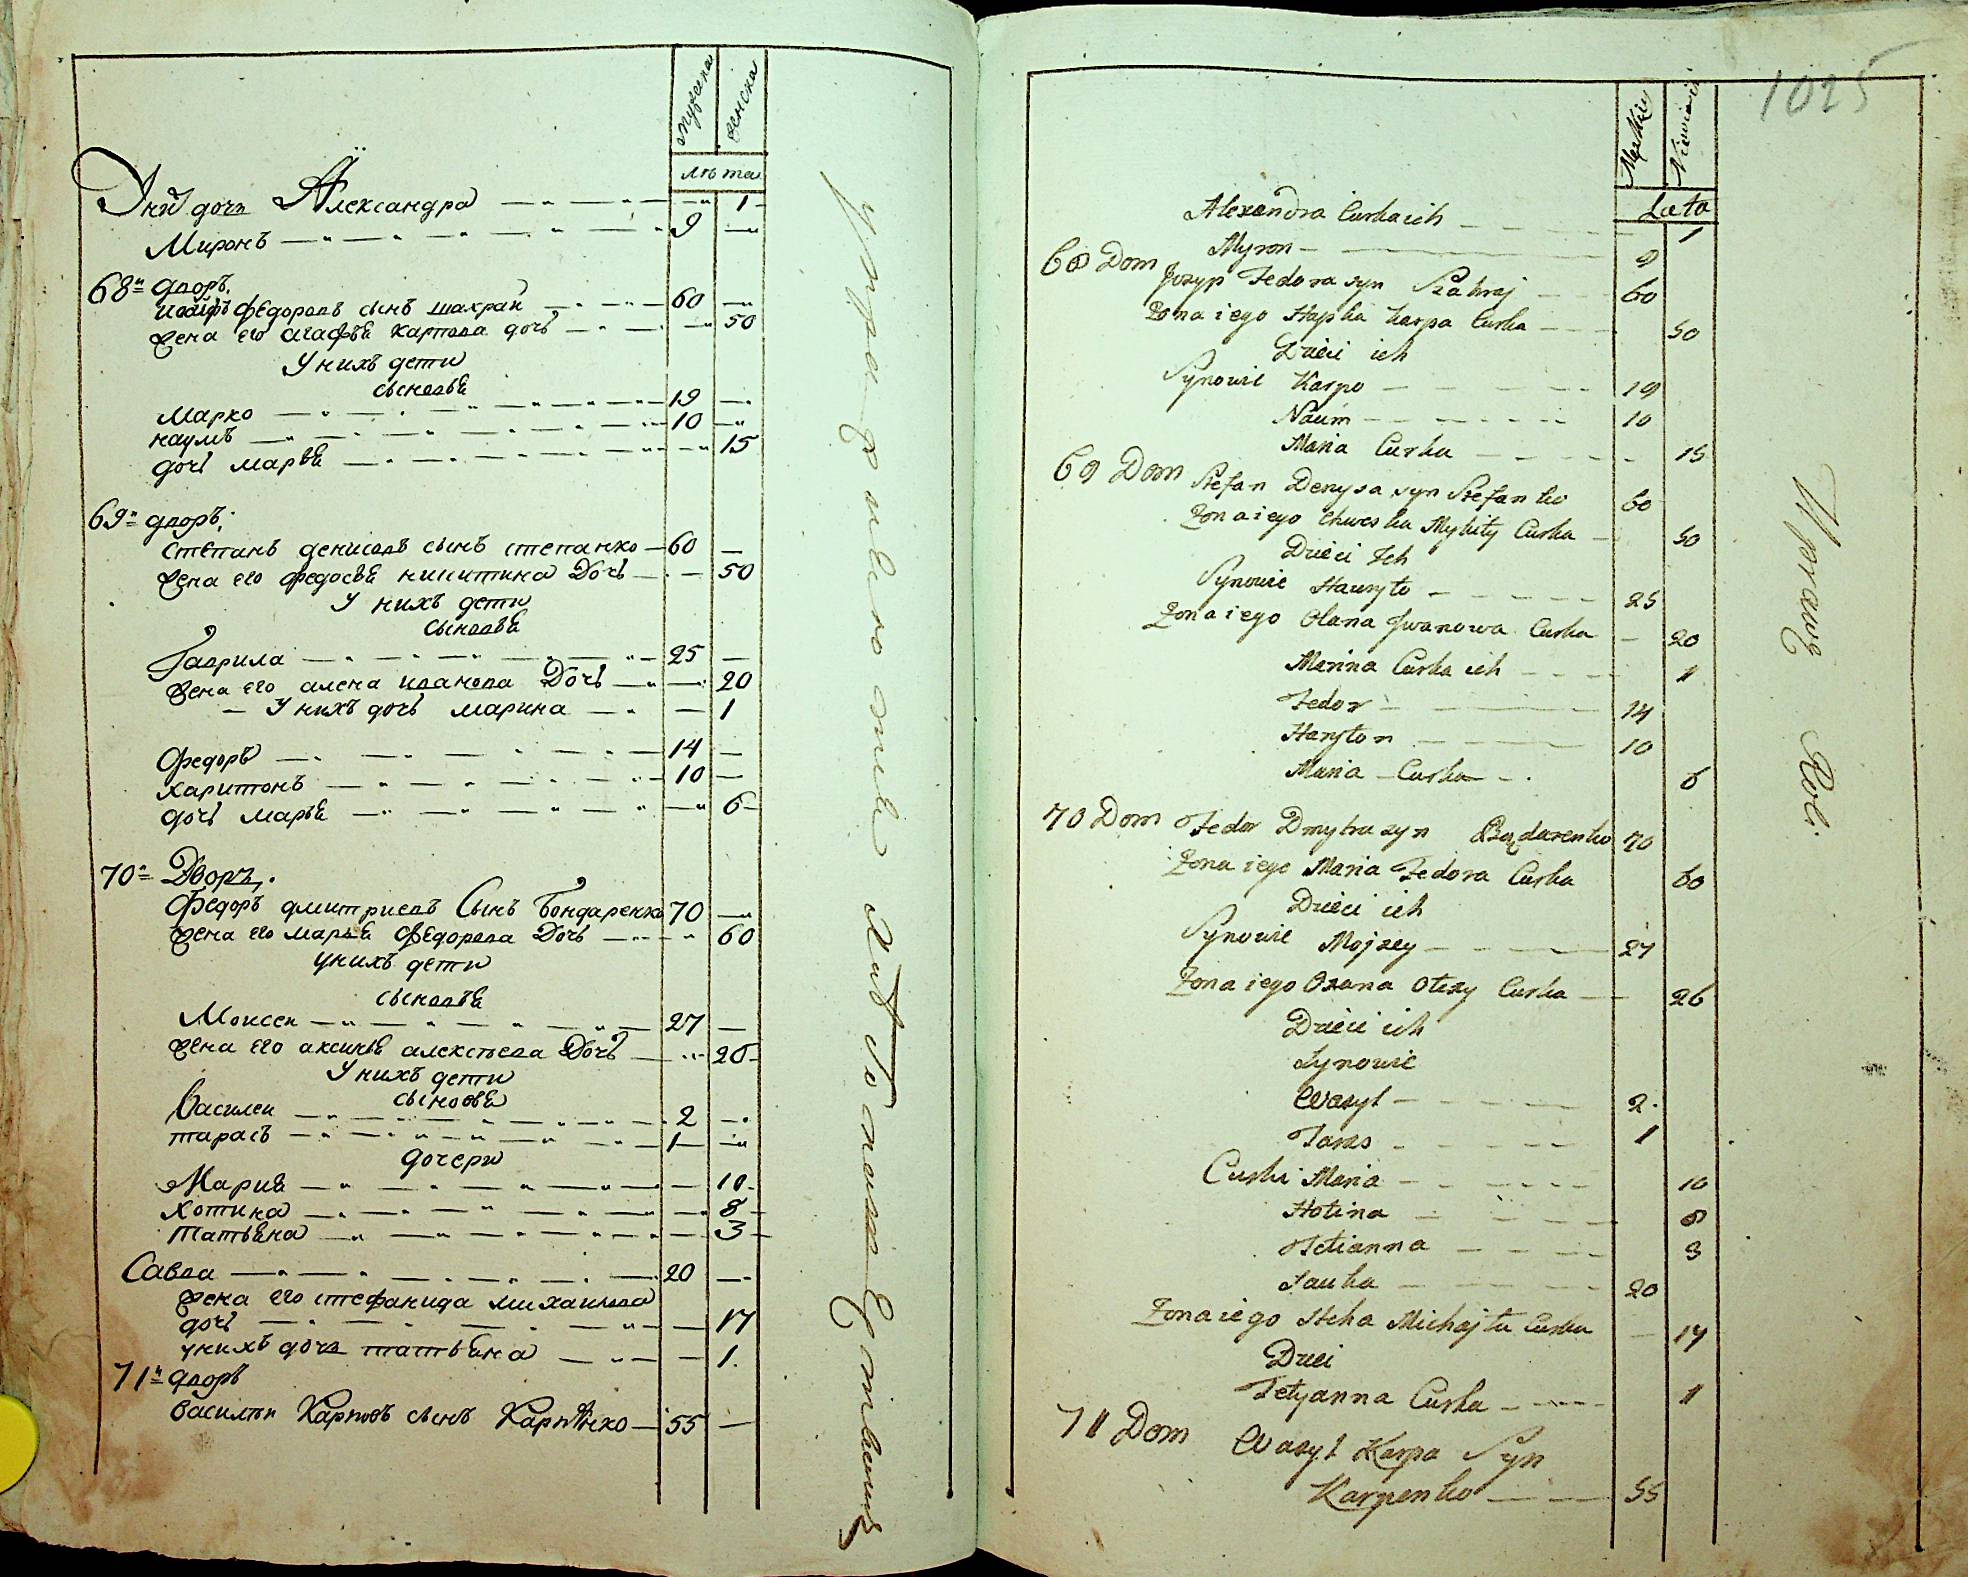 мужеска
женска
лѣта
У ней дочь Александра 1
Миронъ 9
68й дворъ.
иосифъ федоровъ сынъ шахрай 60
жена его агафья карпова дочь 50
У нихъ дети
сыновья
Марко 19
наумъ 10
дочь марья 15
69й дворъ.
степанъ денисовъ сынъ степанко 60
жена его федосья никитина Дочь 50
У нихъ дети
сыновья
Гаврила 25
жена его алена иванова Дочь 20
У нихъ дочь марина 1
Федоръ 14
харитонъ 10
дочь марья 6
70й Дворъ.
Федоръ дмитриевъ Сынъ Бондаренко 70
жена его марья Федорова Дочь 60
у нихъ дети
сыновья
Моисеи 27
жена его аксинья алексѣева Дочь 26
У нихъ дети
сыновья
Василеи 2
тарасъ 1
дочери
Мария 10
хотина 8
татьяна 3
Савва 20
жена его стефанида михаилова
дочь 17
у нихъ дочь татьяна 1.
71й дворъ
василѣи Карповъ сынъ Карпѣнко 55
1025
Męzkiey
Lata
Alexandra Curka ich 1
Myron 9
68 Dom
Jozyp Fedora syn Szahraj 60
Żona iego Hapka Karpa Curka 50
Dzieci ich
Synowie Karpo 19
Naum 10
Maria Curka 15
69 Dom Stefan Denysa syn Stefanko 60
Żona iego Chweska Mykity Curka 50
Dzieci Ich
Synowie Hawryło 25
Żona iego Olana Iwanowa Curka 20
Marina Curka ich 1
Fedor 14
Haryton 10
Maria Curka 6
70 Dom Fedor Dmytra syn Bądarenko 70
Żona iego Maria Fedora Curka 60
Dzieci ich
Synowie Mojzey 27
Żona iego Oxana Olexy Curka 26
Dzieci ich
Synowie
Wasyl 2.
Taras 1
Curki Maria 10
Hotina 8
Tetianna 3
Sawka 20
Żona iego Steha Michajła Curka 17
Dzieci
Tetyanna Curka 1
71 Dom Wasyl Karpa Syn
Karpenko 55